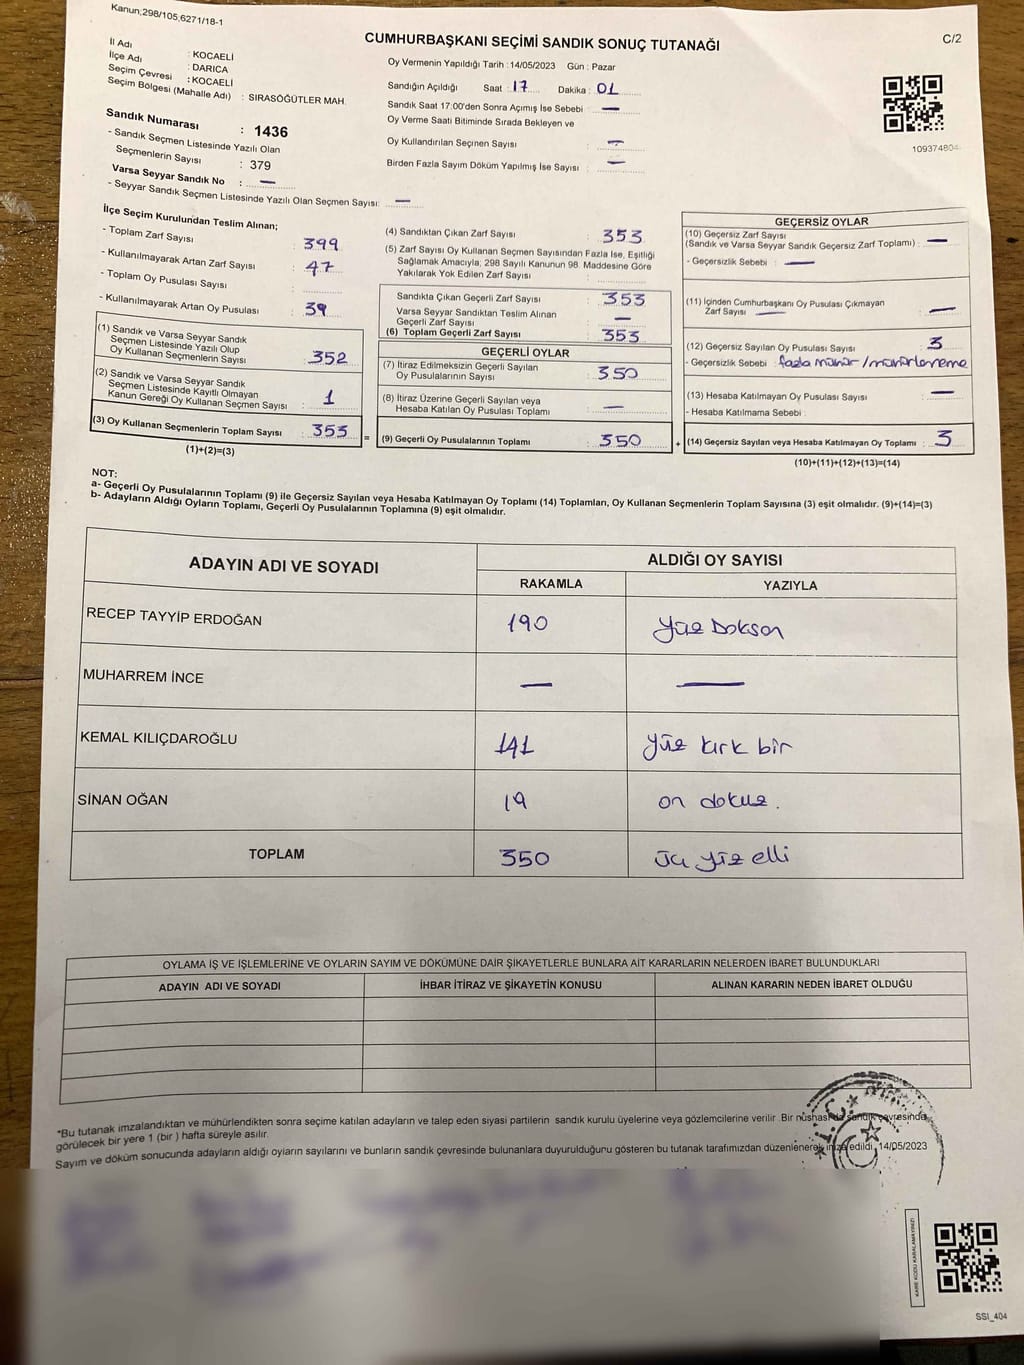 Kanun;298/105,6271/18-1
CUMHURBAŞKANI SEÇİMİ SANDIK SONUÇ TUTANAĞI
C/2
İl Adı : KOCAELİ
İlçe Adı : DARICA
Seçim Çevresi : KOCAELİ
Seçim Bölgesi (Mahalle Adı) : SIRASÖĞÜTLER MAH.
Sandık Numarası : 1436
- Sandık Seçmen Listesinde Yazılı Olan
Seçmenlerin Sayısı : 379
Varsa Seyyar Sandık No : —
- Seyyar Sandık Seçmen Listesinde Yazılı Olan Seçmen Sayısı: —
Oy Vermenin Yapıldığı Tarih : 14/05/2023 Gün : Pazar
Sandığın Açıldığı Saat : 17 Dakika : 01
Sandık Saat 17:00'den Sonra Açımış İse Sebebi : —
Oy Verme Saati Bitiminde Sırada Bekleyen ve
Oy Kullandırılan Seçinen Sayısı : —
Birden Fazla Sayım Döküm Yapılmış İse Sayısı : —
109374804
İlçe Seçim Kurulundan Teslim Alınan;
- Toplam Zarf Sayısı : 399
- Kullanılmayarak Artan Zarf Sayısı : 47
- Toplam Oy Pusulası Sayısı :
- Kullanılmayarak Artan Oy Pusulası : 39
(1) Sandık ve Varsa Seyyar Sandık
Seçmen Listesinde Yazılı Olup
Oy Kullanan Seçmenlerin Sayısı : 352
(2) Sandık ve Varsa Seyyar Sandık
Seçmen Listesinde Kayıtlı Olmayan
Kanun Gereği Oy Kullanan Seçmen Sayısı : 1
(3) Oy Kullanan Seçmenlerin Toplam Sayısı : 353
(1)+(2)=(3)
(4) Sandıktan Çıkan Zarf Sayısı : 353
(5) Zarf Sayısı Oy Kullanan Seçmen Sayısından Fazla İse, Eşitliği
Sağlamak Amacıyla; 298 Sayılı Kanunun 98. Maddesine Göre
Yakılarak Yok Edilen Zarf Sayısı :
Sandıkta Çıkan Geçerli Zarf Sayısı : 353
Varsa Seyyar Sandıktan Teslim Alınan
Geçerli Zarf Sayısı : —
(6) Toplam Geçerli Zarf Sayısı : 353
GEÇERLİ OYLAR
(7) İtiraz Edilmeksizin Geçerli Sayılan
Oy Pusulalarının Sayısı : 350
(8) İtiraz Üzerine Geçerli Sayılan veya
Hesaba Katılan Oy Pusulası Toplamı : —
= (9) Geçerli Oy Pusulalarının Toplamı : 350 +
GEÇERSİZ OYLAR
(10) Geçersiz Zarf Sayısı
(Sandık ve Varsa Seyyar Sandık Geçersiz Zarf Toplamı) : —
- Geçersizlik Sebebi : —
(11) İçinden Cumhurbaşkanı Oy Pusulası Çıkmayan
Zarf Sayısı — —
(12) Geçersiz Sayılan Oy Pusulası Sayısı : 3
- Geçersizlik Sebebi : fazla mühür / mühürlememe
(13) Hesaba Katılmayan Oy Pusulası Sayısı : —
- Hesaba Katılmama Sebebi :
(14) Geçersiz Sayılan veya Hesaba Katılmayan Oy Toplamı : 3
(10)+(11)+(12)+(13)=(14)
NOT:
a- Geçerli Oy Pusulalarının Toplamı (9) ile Geçersiz Sayılan veya Hesaba Katılmayan Oy Toplamı (14) Toplamları, Oy Kullanan Seçmenlerin Toplam Sayısına (3) eşit olmalıdır. (9)+(14)=(3)
b- Adayların Aldığı Oyların Toplamı, Geçerli Oy Pusulalarının Toplamına (9) eşit olmalıdır.
ADAYIN ADI VE SOYADI ALDIĞI OY SAYISI
RAKAMLA YAZIYLA
RECEP TAYYİP ERDOĞAN 190 yüz Doksan
MUHARREM İNCE — —
KEMAL KILIÇDAROĞLU 141 yüz kırk bir
SİNAN OĞAN 19 on dokuz.
TOPLAM 350 üç yüz elli
OYLAMA İŞ VE İŞLEMLERİNE VE OYLARIN SAYIM VE DÖKÜMÜNE DAİR ŞİKAYETLERLE BUNLARA AİT KARARLARIN NELERDEN İBARET BULUNDUKLARI
ADAYIN ADI VE SOYADI İHBAR İTİRAZ VE ŞİKAYETİN KONUSU ALINAN KARARIN NEDEN İBARET OLDUĞU
*Bu tutanak imzalandıktan ve mühürlendikten sonra seçime katılan adayların ve talep eden siyasi partilerin sandık kurulu üyelerine veya gözlemcilerine verilir .Bir nüshası da sandık çevresinde
görülecek bir yere 1 (bir ) hafta süreyle asılır.
Sayım ve döküm sonucunda adayların aldığı oyların sayılarını ve bunların sandık çevresinde bulunanlara duyurulduğunu gösteren bu tutanak tarafımızdan düzenlenerek imza edildi. 14/05/2023
T.C.
KARE KODU KARALAMAYINIZ!
SSI_404